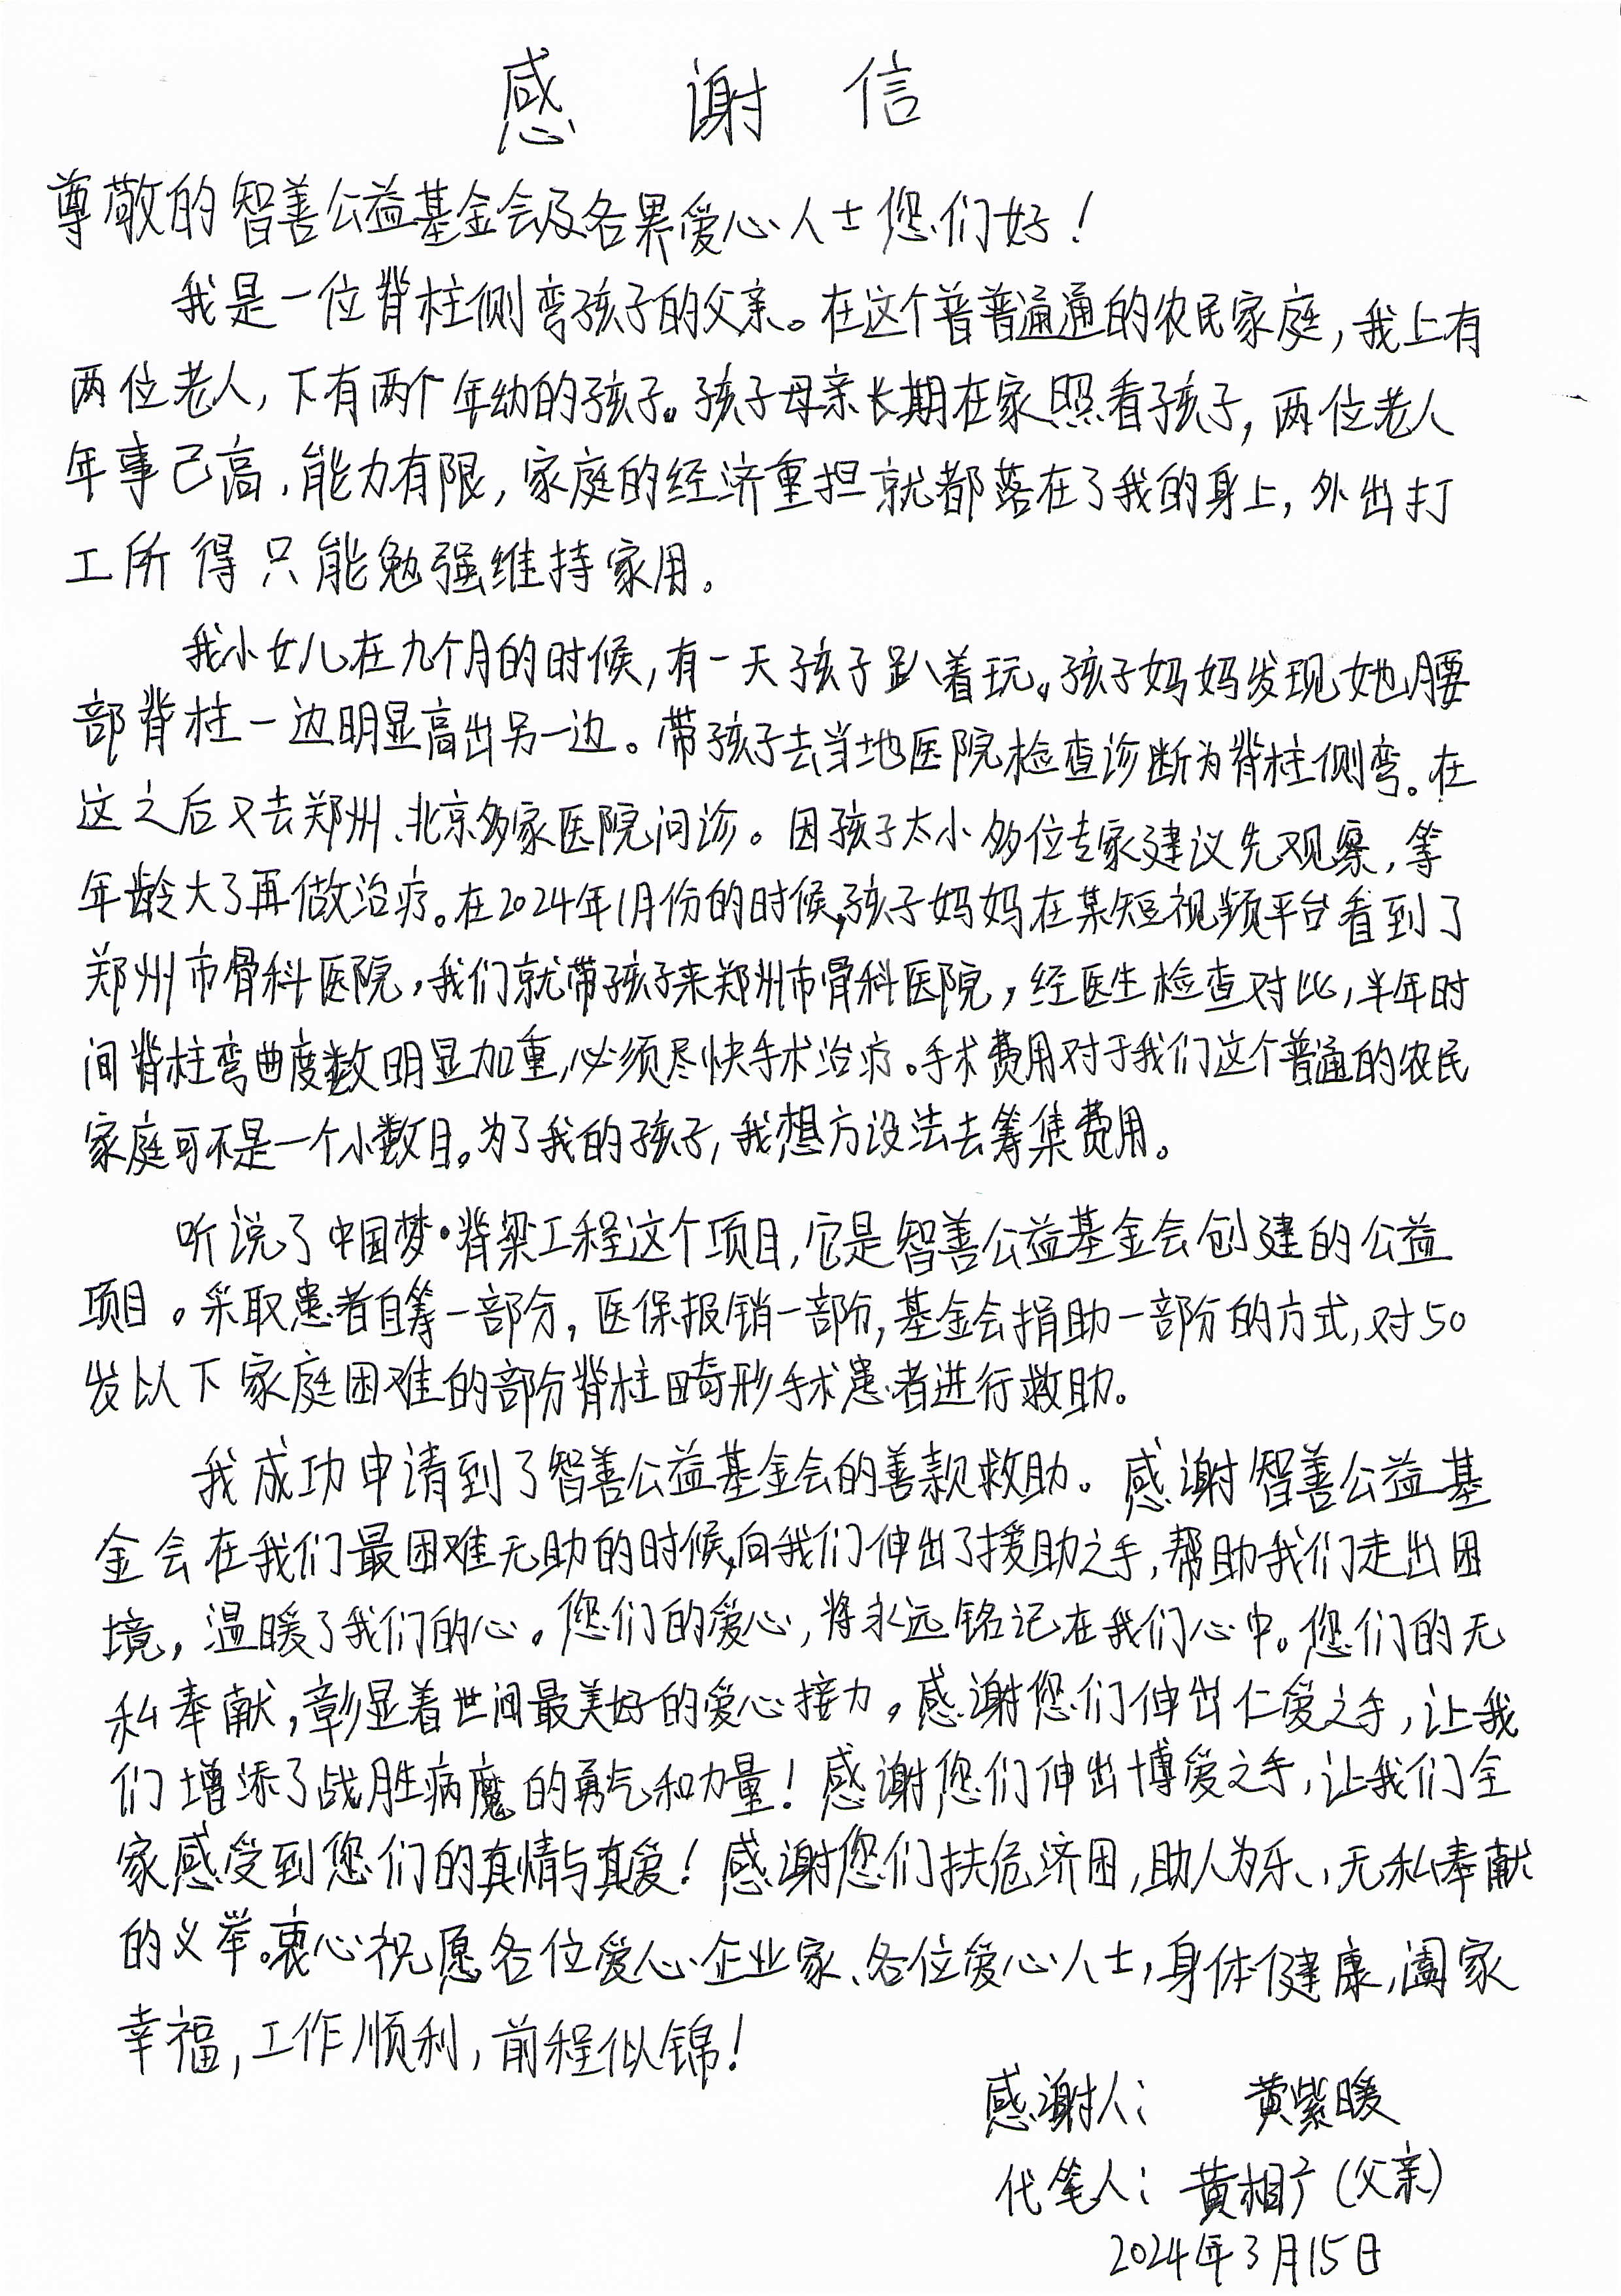 感谢信
尊敬的智善公益基金会及各界爱心人士您们好！
我是一位脊柱侧弯孩子的父亲。在这个普普通通的农民家庭，我上有
两位老人，下有两个年幼的孩子。孩子母亲长期在家照看孩子，两位老人
年事已高，能力有限，家庭的经济重担就都落在了我的身上，外出打
工所得只能勉强维持家用。
我小女儿在九个月的时候，有一天孩子趴着玩。孩子妈妈发现她腰
部脊柱一边明显高出另一边。带孩子去当地医院检查诊断为脊柱侧弯。在
这之后又去郑州、北京多家医院问诊。因孩子太小多位专家建议先观察，等
年龄大了再做治疗。在2024年1月份的时候，孩子妈妈在某短视频平台看到了
郑州市骨科医院，我们就带孩子来郑州市骨科医院，经医生检查对比，半年时
间脊柱弯曲度数明显加重，必须尽快手术治疗。手术费用对于我们这个普通的农民
家庭可不是一个小数目。为了我的孩子，我想方设法去筹集费用。
听说了中国梦·脊梁工程这个项目，它是智善公益基金会创建的公益
项目。采取患者自筹一部分，医保报销一部分，基金会捐助一部分的方式，对50
岁以下家庭困难的部分脊柱畸形手术患者进行救助。
我成功申请到了智善公益基金会的善款救助。感谢智善公益基
金会在我们最困难无助的时候，向我们伸出了援助之手，帮助我们走出困
境，温暖了我们的心。您们的爱心，将永远铭记在我们心中。您们的无
私奉献，彰显着世间最美好的爱心接力。感谢您们伸出仁爱之手，让我
们增添了战胜病魔的勇气和力量！感谢您们伸出博爱之手，让我们全
家感受到您们的真情与真爱！感谢您们扶危济困，助人为乐、无私奉献
的义举。衷心祝愿各位爱心企业家、各位爱心人士，身体健康，阖家
幸福，工作顺利，前程似锦！
感谢人：黄紫暖
代笔人：黄相广（父亲）
2024年3月15日